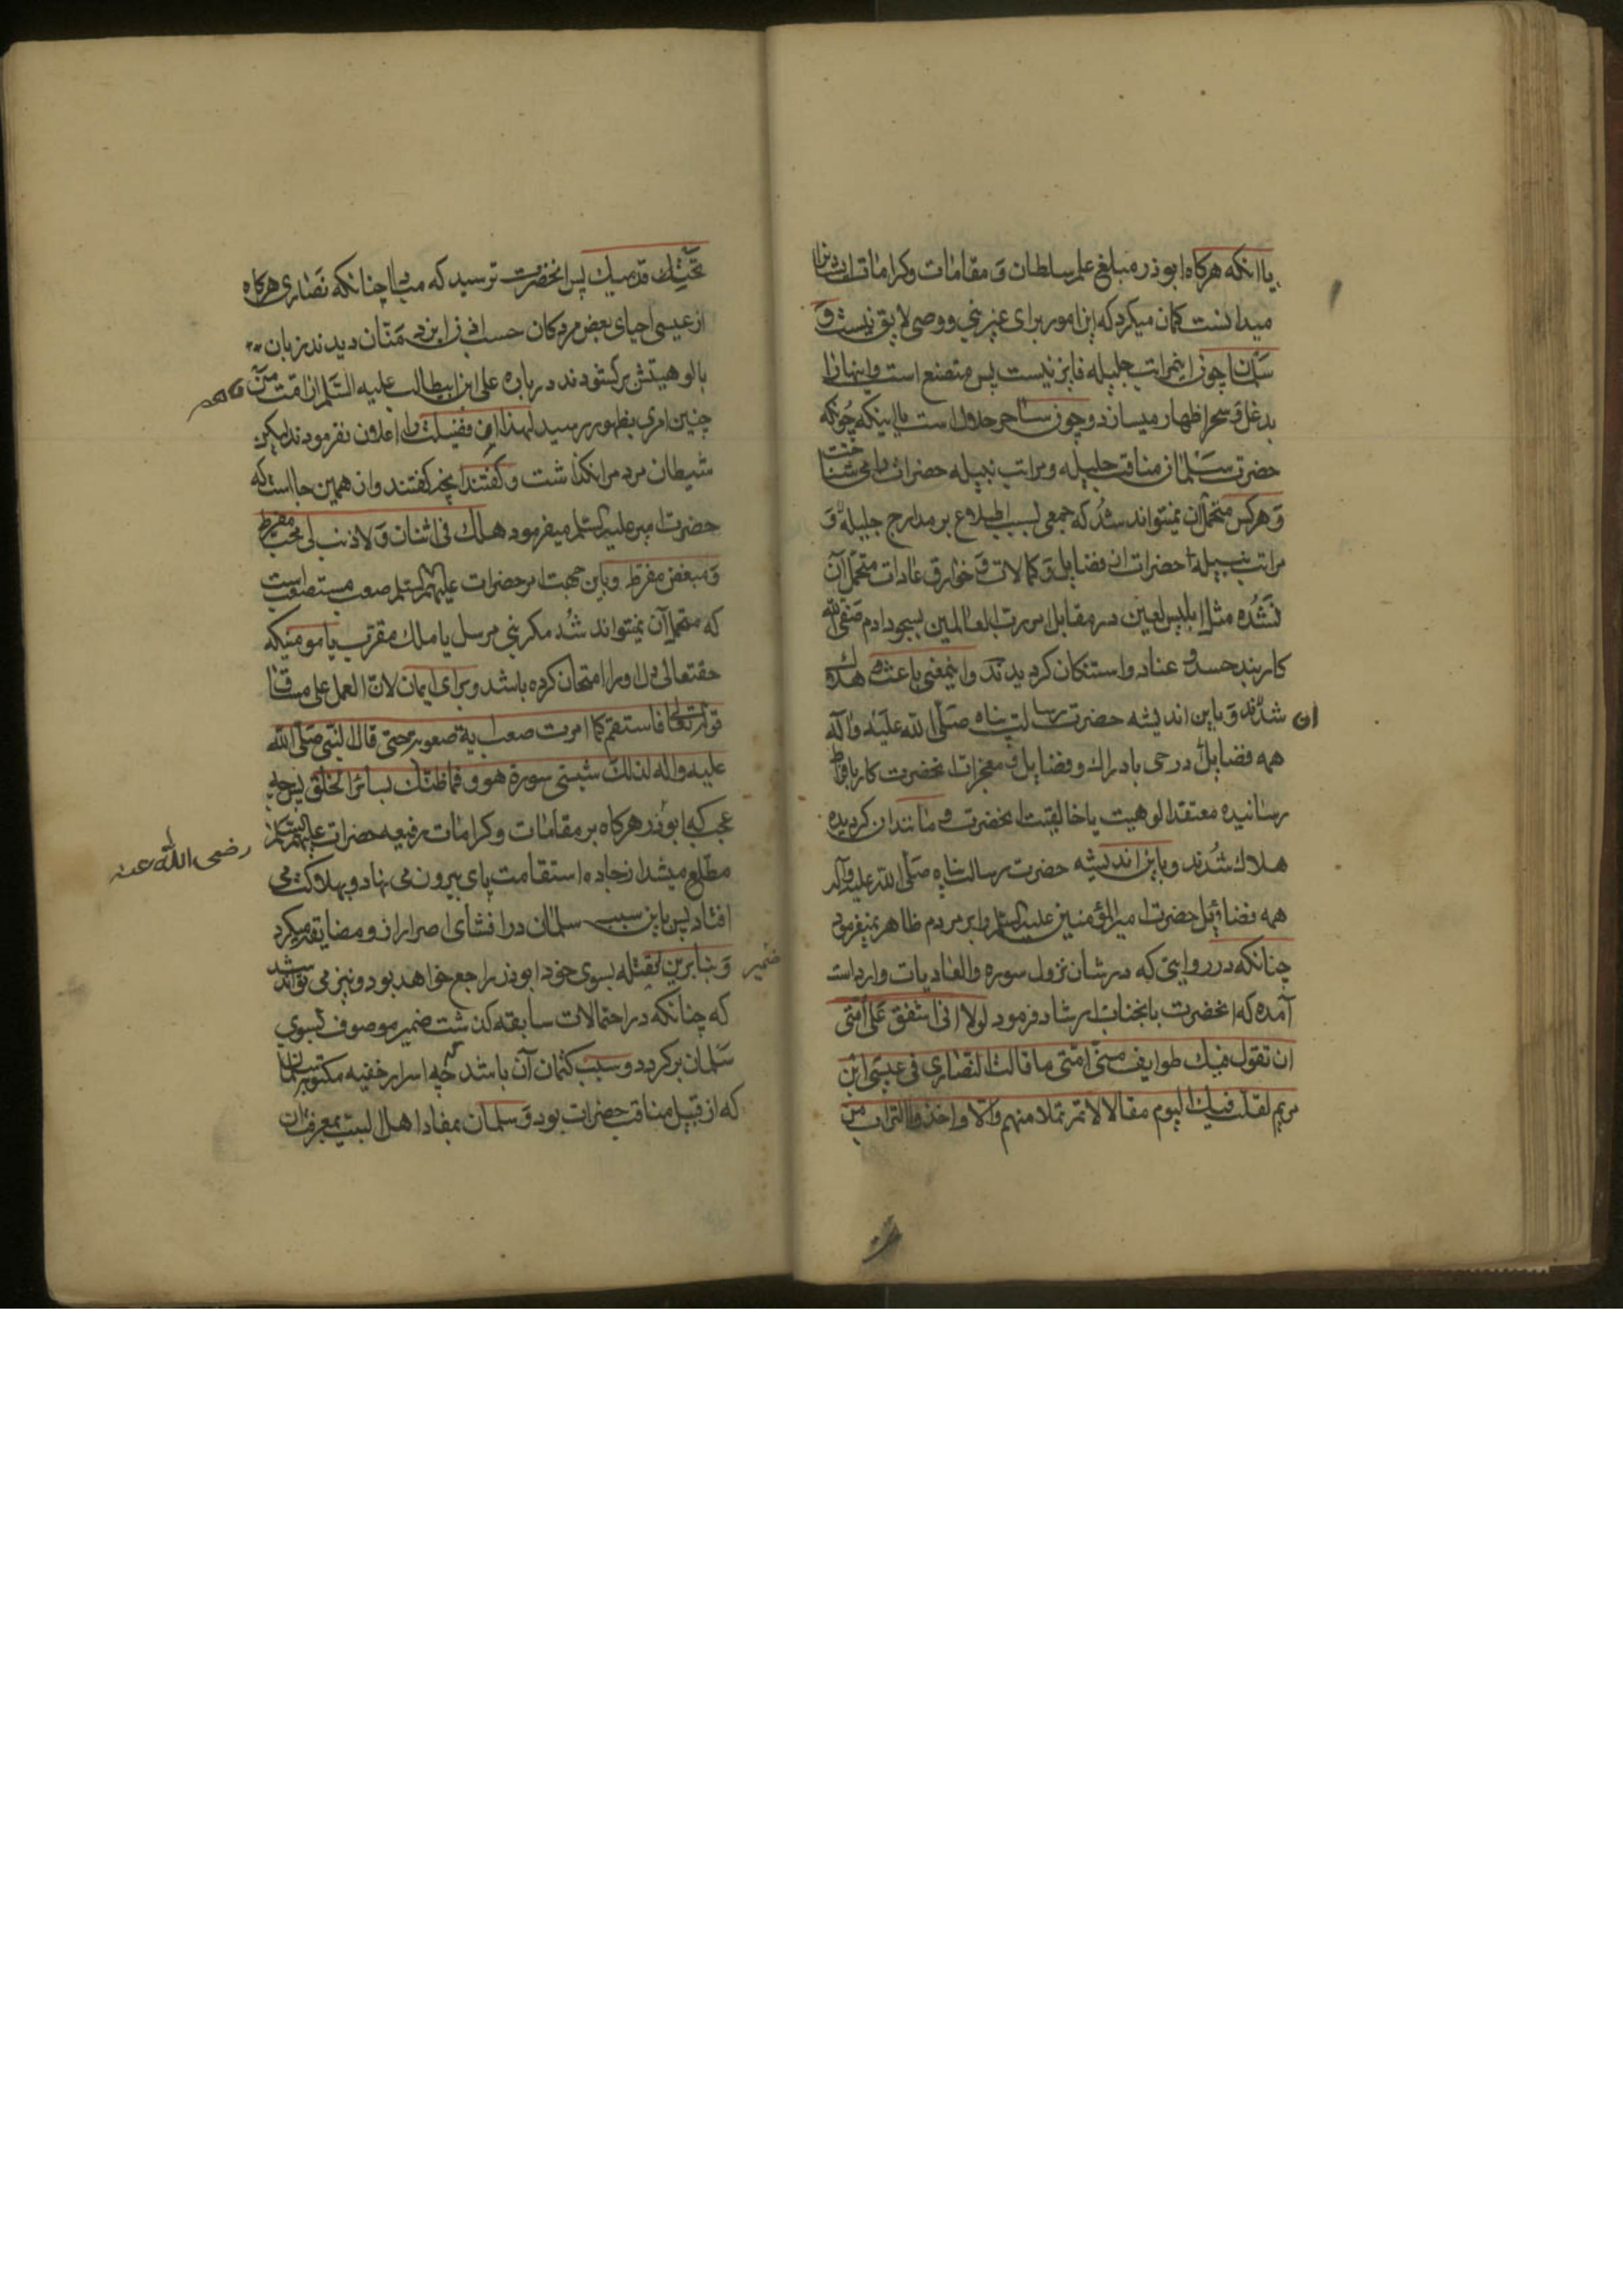 یا انکه هرکاه ابوذر مبلغ علم سلطان و مقامات و کرامات
میدانست کمان میکرد که این امور برای غیر نبی و وصی لایق نیست و
سلمان چون اینمراتب جلیله فایز نیست پس متصنع است و اینها را
بدغل و سحر اظهار میسازد و چون ساحر حلال است یا اینکه چونکه
حضرت سلمان مناقب جلیله و مراتب نبیله حضرات را می شناخت
و هرکس متحمل آن نمیتواند شد که جمعی بسبب اطلاع بر مدارج جلیله و
مراتب نبیله حضرات از فضایل و کمالات و خوارق عادات متحمل آن
نشده مثل ابلیس لعین در مقابل امر رب العالمین بسجود ادم صفی الله
کاربند حسد و عناد و استنکان کردیدند و اینمعنی باعث هلاک
ان شدند و باین اندیشه حضرت رسالت پناه صلی الله علیه و آله
همه فضایل در حی بادراك و فضایل و معجزات انحضرت کار بافراط
رسانیده معتقد الوهیت یا خالقیت انحضرت و مانند ان کردیده
هلاك شدند و باین اندیشه حضرت رسالت پناه صلی الله علیه وآله
همه فضایل حضرت امیرالمؤمنین علیه السلم را بر مردم ظاهر نمیفرمود
چنانکه در روایتی که در شان نزول سوره والعادیات وارد است
آمده که انحضرت بانجناب ارشاد فرمود لولا انی اشفق علی امتی
ان تقول فیك طوایف من امتی ما قالت النصاری فی عیسی ابن
مریم لقلت فیك الیوم مقالا لا تمر بملاء منهم والا واخذوا التراب من
تحت قدمیك پس انحضرت ترسید که مبادا چنانکه نصاری هرکاه
از عیسی احیای بعض مردکان حسب اذن ایزد منان دیدند زبان
بالوهیتش برکشودند درباره علی ابن ابیطالب علیه السلم از امت من هم
چنین امری بظهور رسید لهذا این فضیلت را اعلان نفرمودند لیکن
شیطان مردم را نکذاشت و کفتند انچه کفتند و از همین جا است که
حضرت امیر علیه السلم میفرمود هلك فی اثنان و لا ذنب لی محب مفرط
و مبغض مفرط و باین جهت امر حضرات علیهم السلم صعب مستصعب است
که متحمل آن نمیتواند شد مکر نبی مرسل یا ملك مقرب یا مومنیکه
حقتعالی دل او را امتحان کرده باشد و برای ایمان لان العمل علی
قوله تعالی فاستقم کما امرت صعب لیة صعوبة حتی قال النبی صلی الله
علیه واله لذلك شیبتی سورة هود فما ظنك بسائر الخلق پس چه
عجب که ابوذر هرکاه بر مقامات و کرامات رفیعه حضرات علیهم السلم
رضی الله عنه
مطلع میشد از جاده استقامت پای بیرون می نهاد و بهلاکت می
افتاد پس باین سبب سلمان در افشای اصرار از و مضایقه میکرد
و بنابرین ضمیر لقتله بسوی خود ابوذر راجع خواهد بود و نیز می تواند شد
که چنانکه در احتمالات سابقه کذشت ضمیر موصوف بسوی
سلمان برکردد و سبب کتمان آن باشد که چه اسرار خفیه
که از قبیل مناقب حضرات بود و سلمان بمفاد اهل البیت